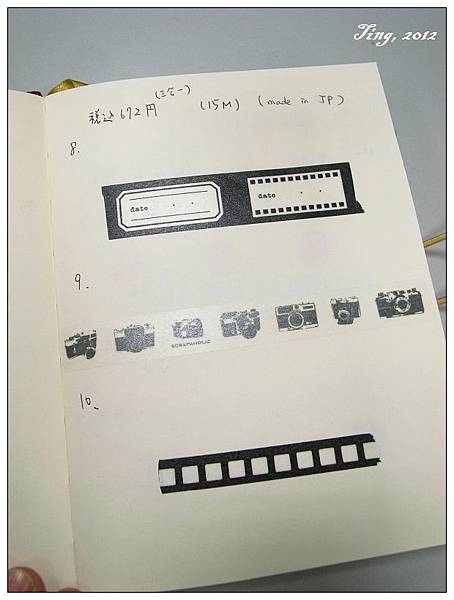 Jing, 2012
(三合一)
税込 672円 (15M) (made in JP)
8.
date . .
date . .
9.
SCRAPAHOLIC
10.